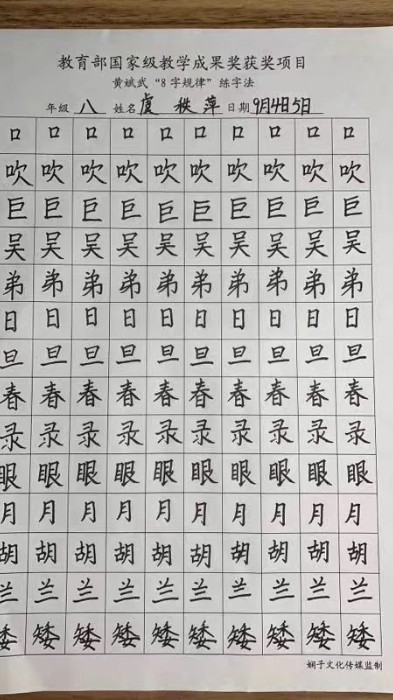 教育部国家级教学成果奖获奖项目
黄斌武“8字规律”练字法
年级 八 姓名 虞 秩 萍 日期 9月4日5日
口 口 口 口 口 口 口 口 口 口
吹 吹 吹 吹 吹 吹 吹 吹 吹 吹
巨 巨 巨 巨 巨 巨 巨 巨 巨 巨
吴 吴 吴 吴 吴 吴 吴 吴 吴 吴
弟 弟 弟 弟 弟 弟 弟 弟 弟 弟
日 日 日 日 日 日 日 日 日 日
旦 旦 旦 旦 旦 旦 旦 旦 旦 旦
春 春 春 春 春 春 春 春 春 春
录 录 录 录 录 录 录 录 录 录
眼 眼 眼 眼 眼 眼 眼 眼 眼 眼
月 月 月 月 月 月 月 月 月 月
胡 胡 胡 胡 胡 胡 胡 胡 胡 胡
兰 兰 兰 兰 兰 兰 兰 兰 兰 兰
矮 矮 矮 矮 矮 矮 矮 矮 矮 矮
娴子文化传媒监制